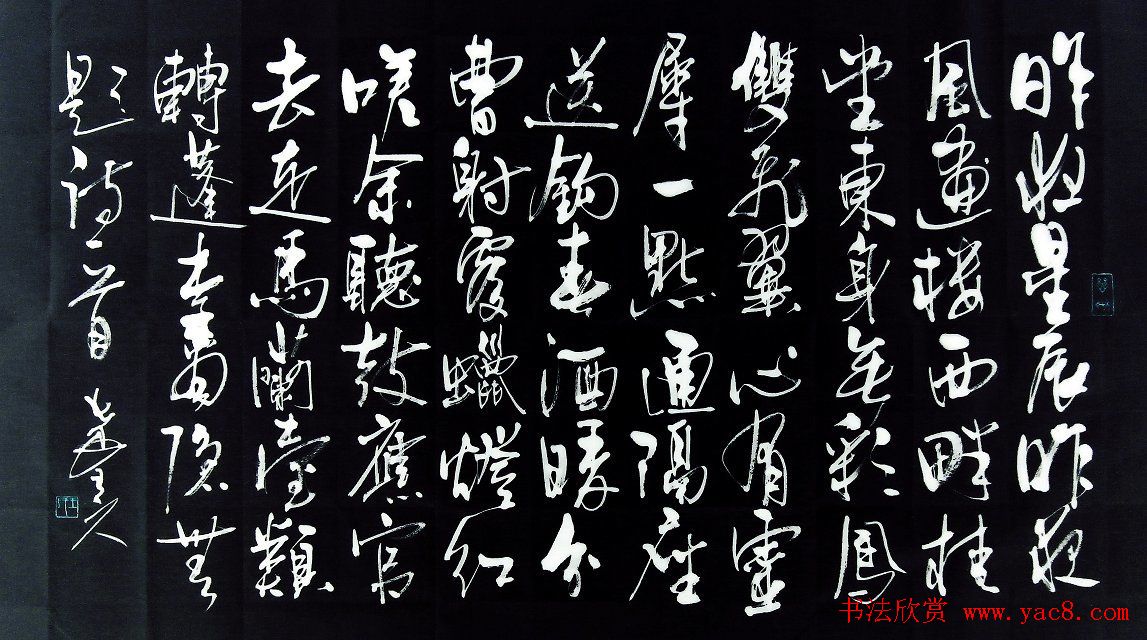 昨夜星辰昨夜
風畫樓西畔桂
堂東身無彩鳳
雙飛翼心有靈
犀一點通隔座
送鈎春酒暖分
曹射覆蠟燈紅
嗟余聽鼓應官
去走馬蘭臺類
轉蓬李商隱無
題詩一首
书法欣赏 www.yac8.com